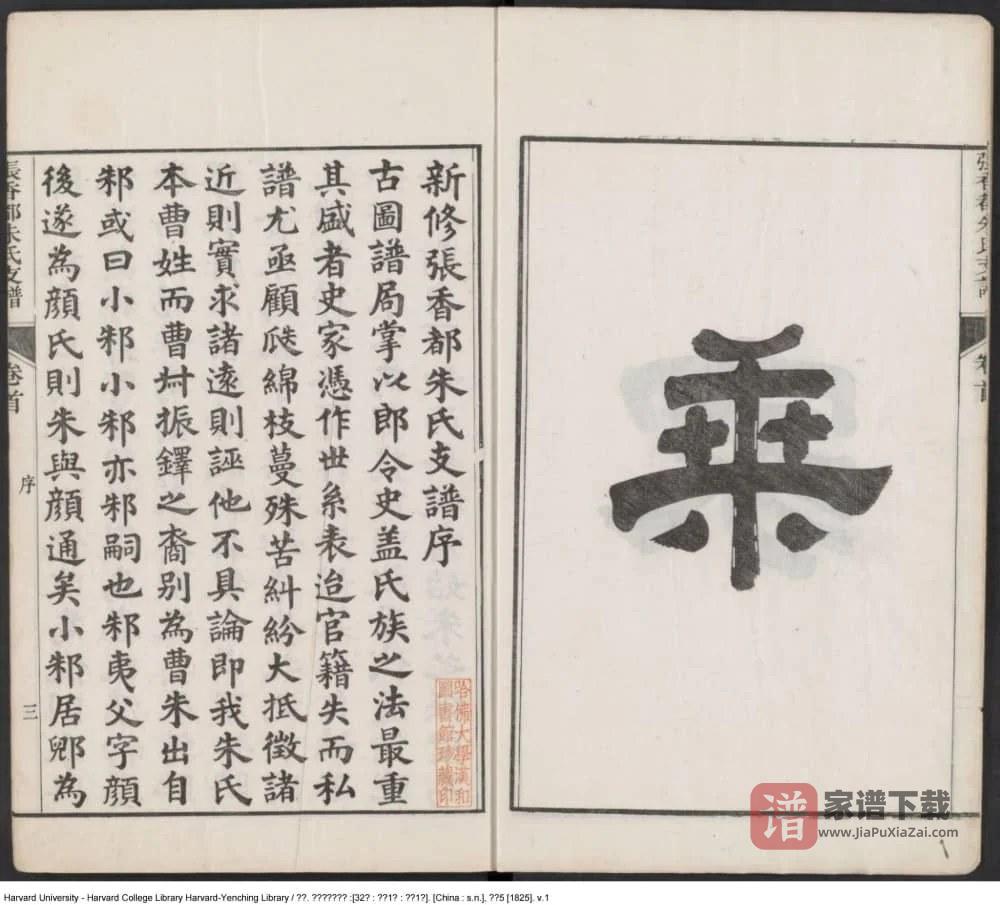 乘
張香都朱氏支譜
卷首
新修張香都朱氏支譜序
古圖譜局掌以郎令史盖氏族之法最重
其盛者史家憑作世系表迨官籍失而私
譜尤亟顧瓞綿枝蔓殊苦糾紛大抵徵諸
近則實求諸遠則誣他不具論即我朱氏
本曹姓而曹州振鐸之裔別為曹朱出自
邾或曰小邾小邾亦邾嗣也邾夷父字顏
後遂為顏氏則朱與顏通矣小邾居郳為
張香都朱氏支譜
卷首
序
三
哈佛大學漢和
圖書館珍藏印
谱
家谱下载
www.JiaPuXiaZai.com
Harvard University - Harvard College Library Harvard-Yenching Library / ??. ??????? :[32? : ??1? : ??1?]. [China : s.n.], ??5 [1825]. v.1